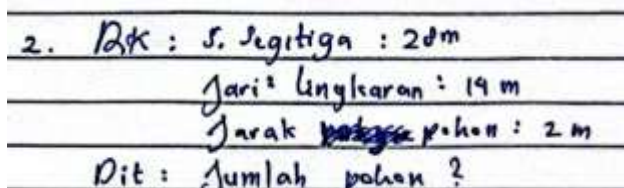 2. DK : S. Segitiga : 28m
Jari² lingkaran : 14 m
Jarak pohon : 2 m
Dit : Jumlah pohon ?